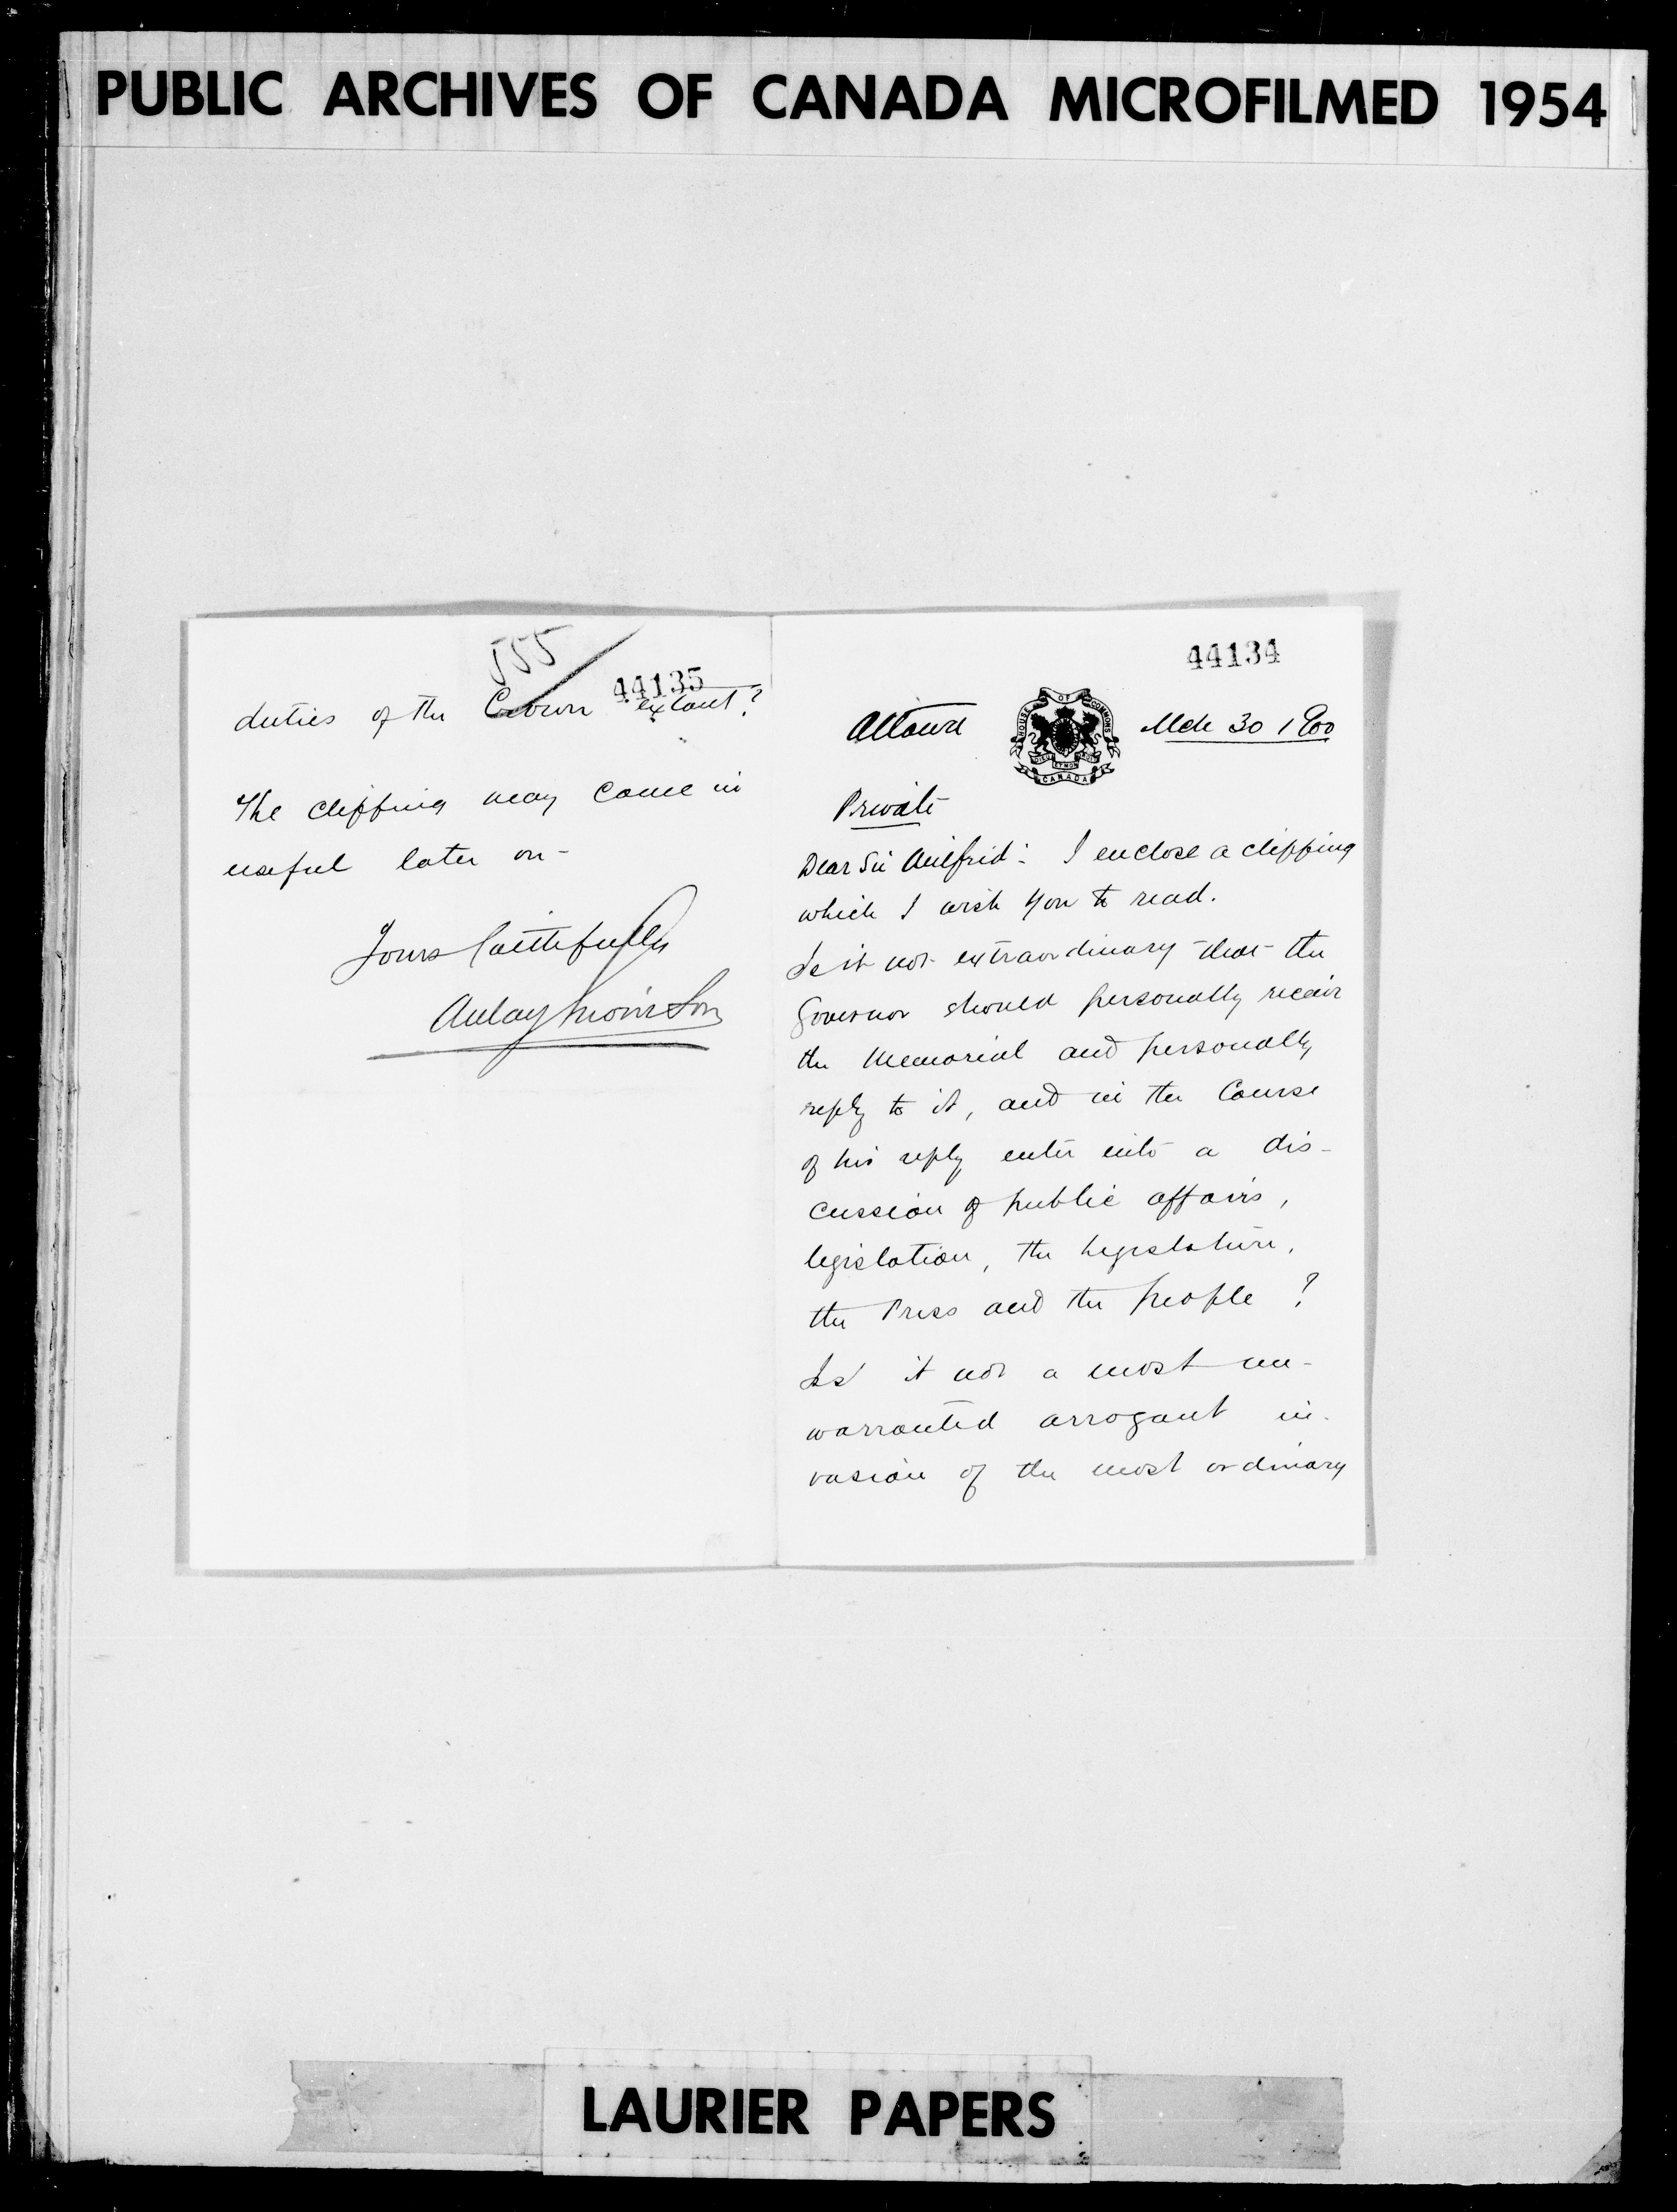 PUBLIC ARCHIVES OF CANADA MICROFILMED 1954
44134
Ottawa
HOUSE OF COMMONS
DIEU ET MON DROIT
CANADA
Mch 30 1900
Private
Dear Sir Wilfrid: I enclose a clipping
which I wish you to read.
Is it not extraordinary that the
Governor should personally receive
the Memorial and personally
reply to it, and in the Course
of his reply enter into a dis-
cussion of public affairs,
legislation, the Legislature,
the Press and the people?
Is it not a most un-
warranted arrogant in-
vasion of the most ordinary
555
44135
duties of the Crown extant?
The clipping may come in
useful later on-
Yours faithfully
Aulay Morrison
LAURIER PAPERS